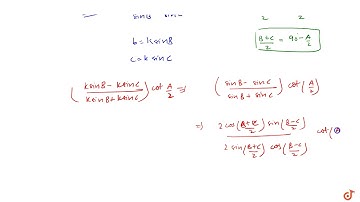 sinB sinC
2 2
b = k sinB
(B+C)/2 = 90 - A/2
c = k sinC
((k sinB - k sinC)/(k sinB + k sinC)) cot A/2 ⇒ ((sinB - sinC)/(sinB + sinC)) cot(A/2)
⇒ (2 cos((B+C)/2) sin((B-C)/2))/(2 sin((B+C)/2) cos((B-C)/2)) cot(